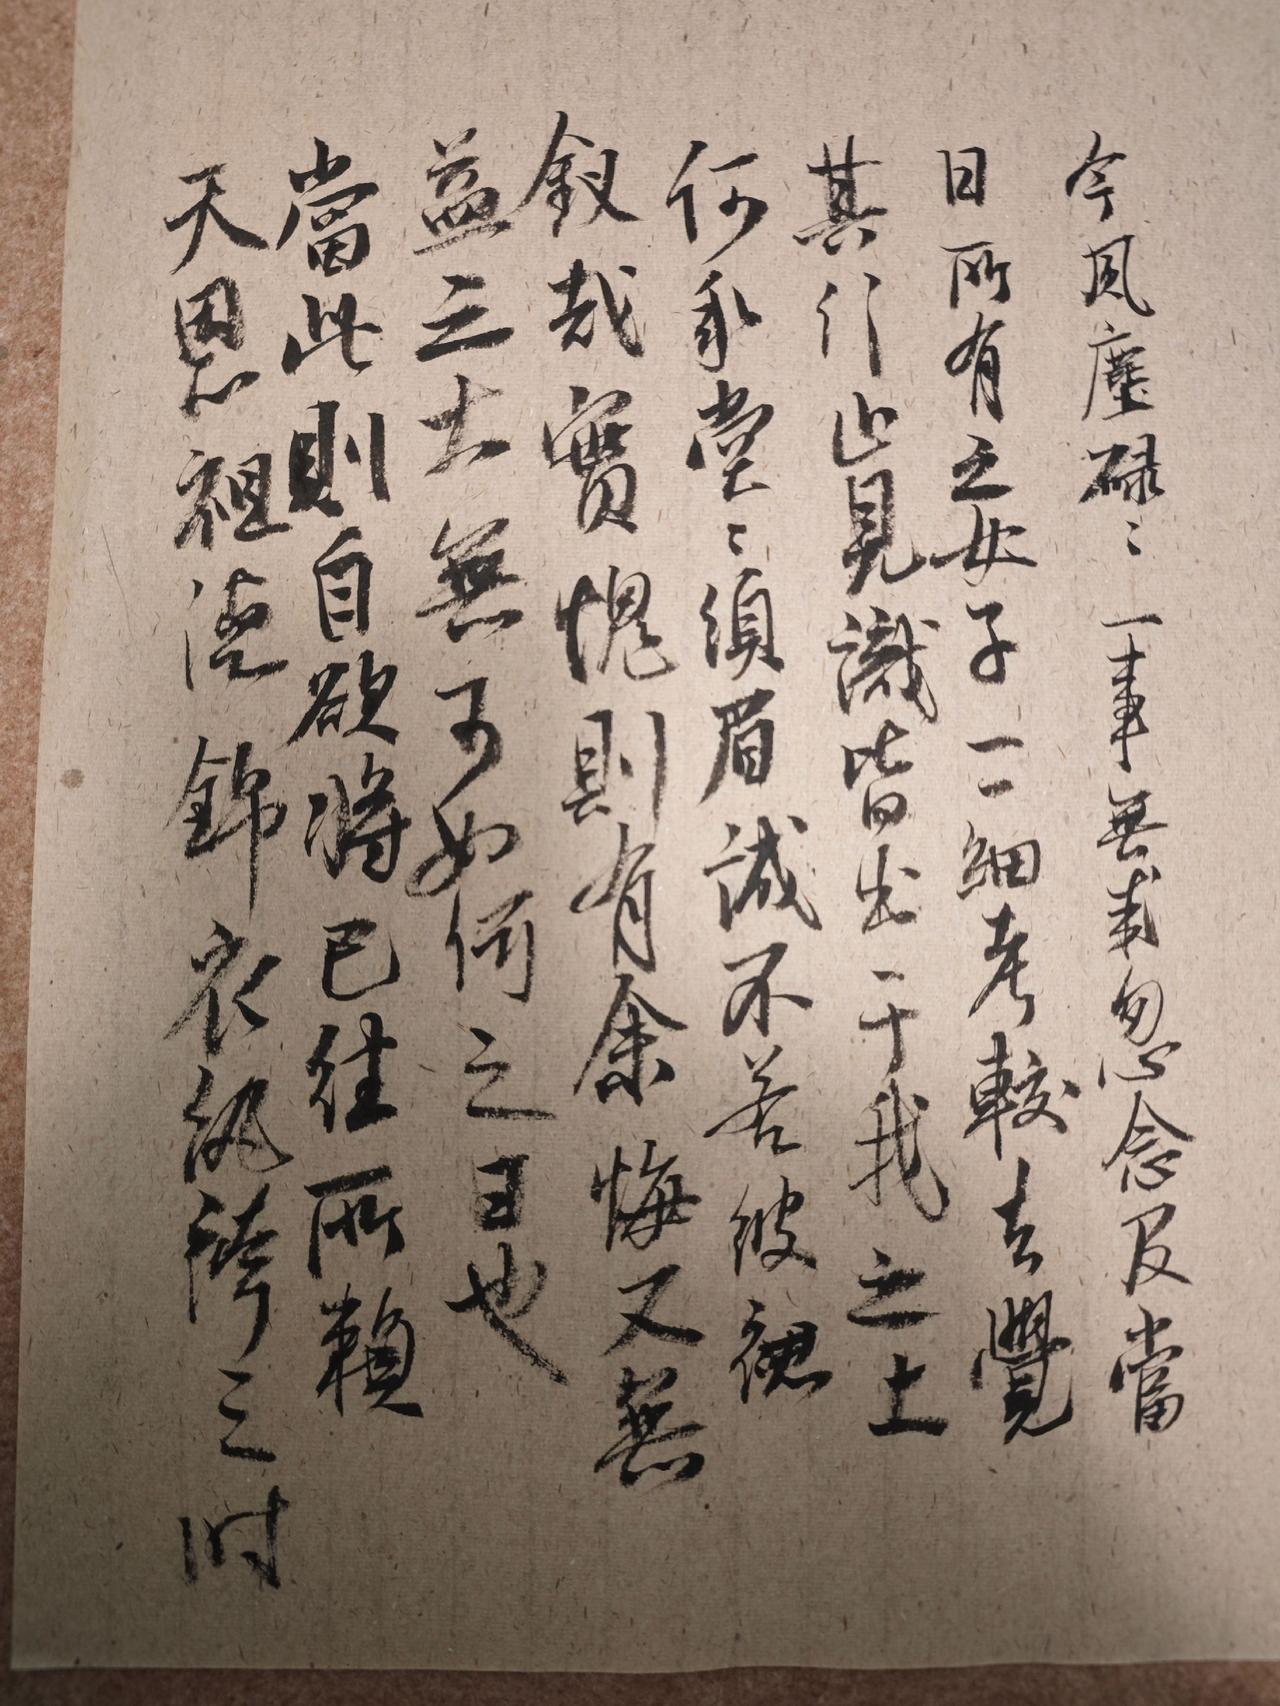 今風塵碌〻一事無成忽念及當
日所有之女子一一細考較去覺
其行止見識皆出于我之上
何我堂〻須眉誠不若彼裙
釵哉實愧則有余悔又無
益之大無可如何之日也
當此則自欲將已往所賴
天恩祖德錦衣紈袴之时